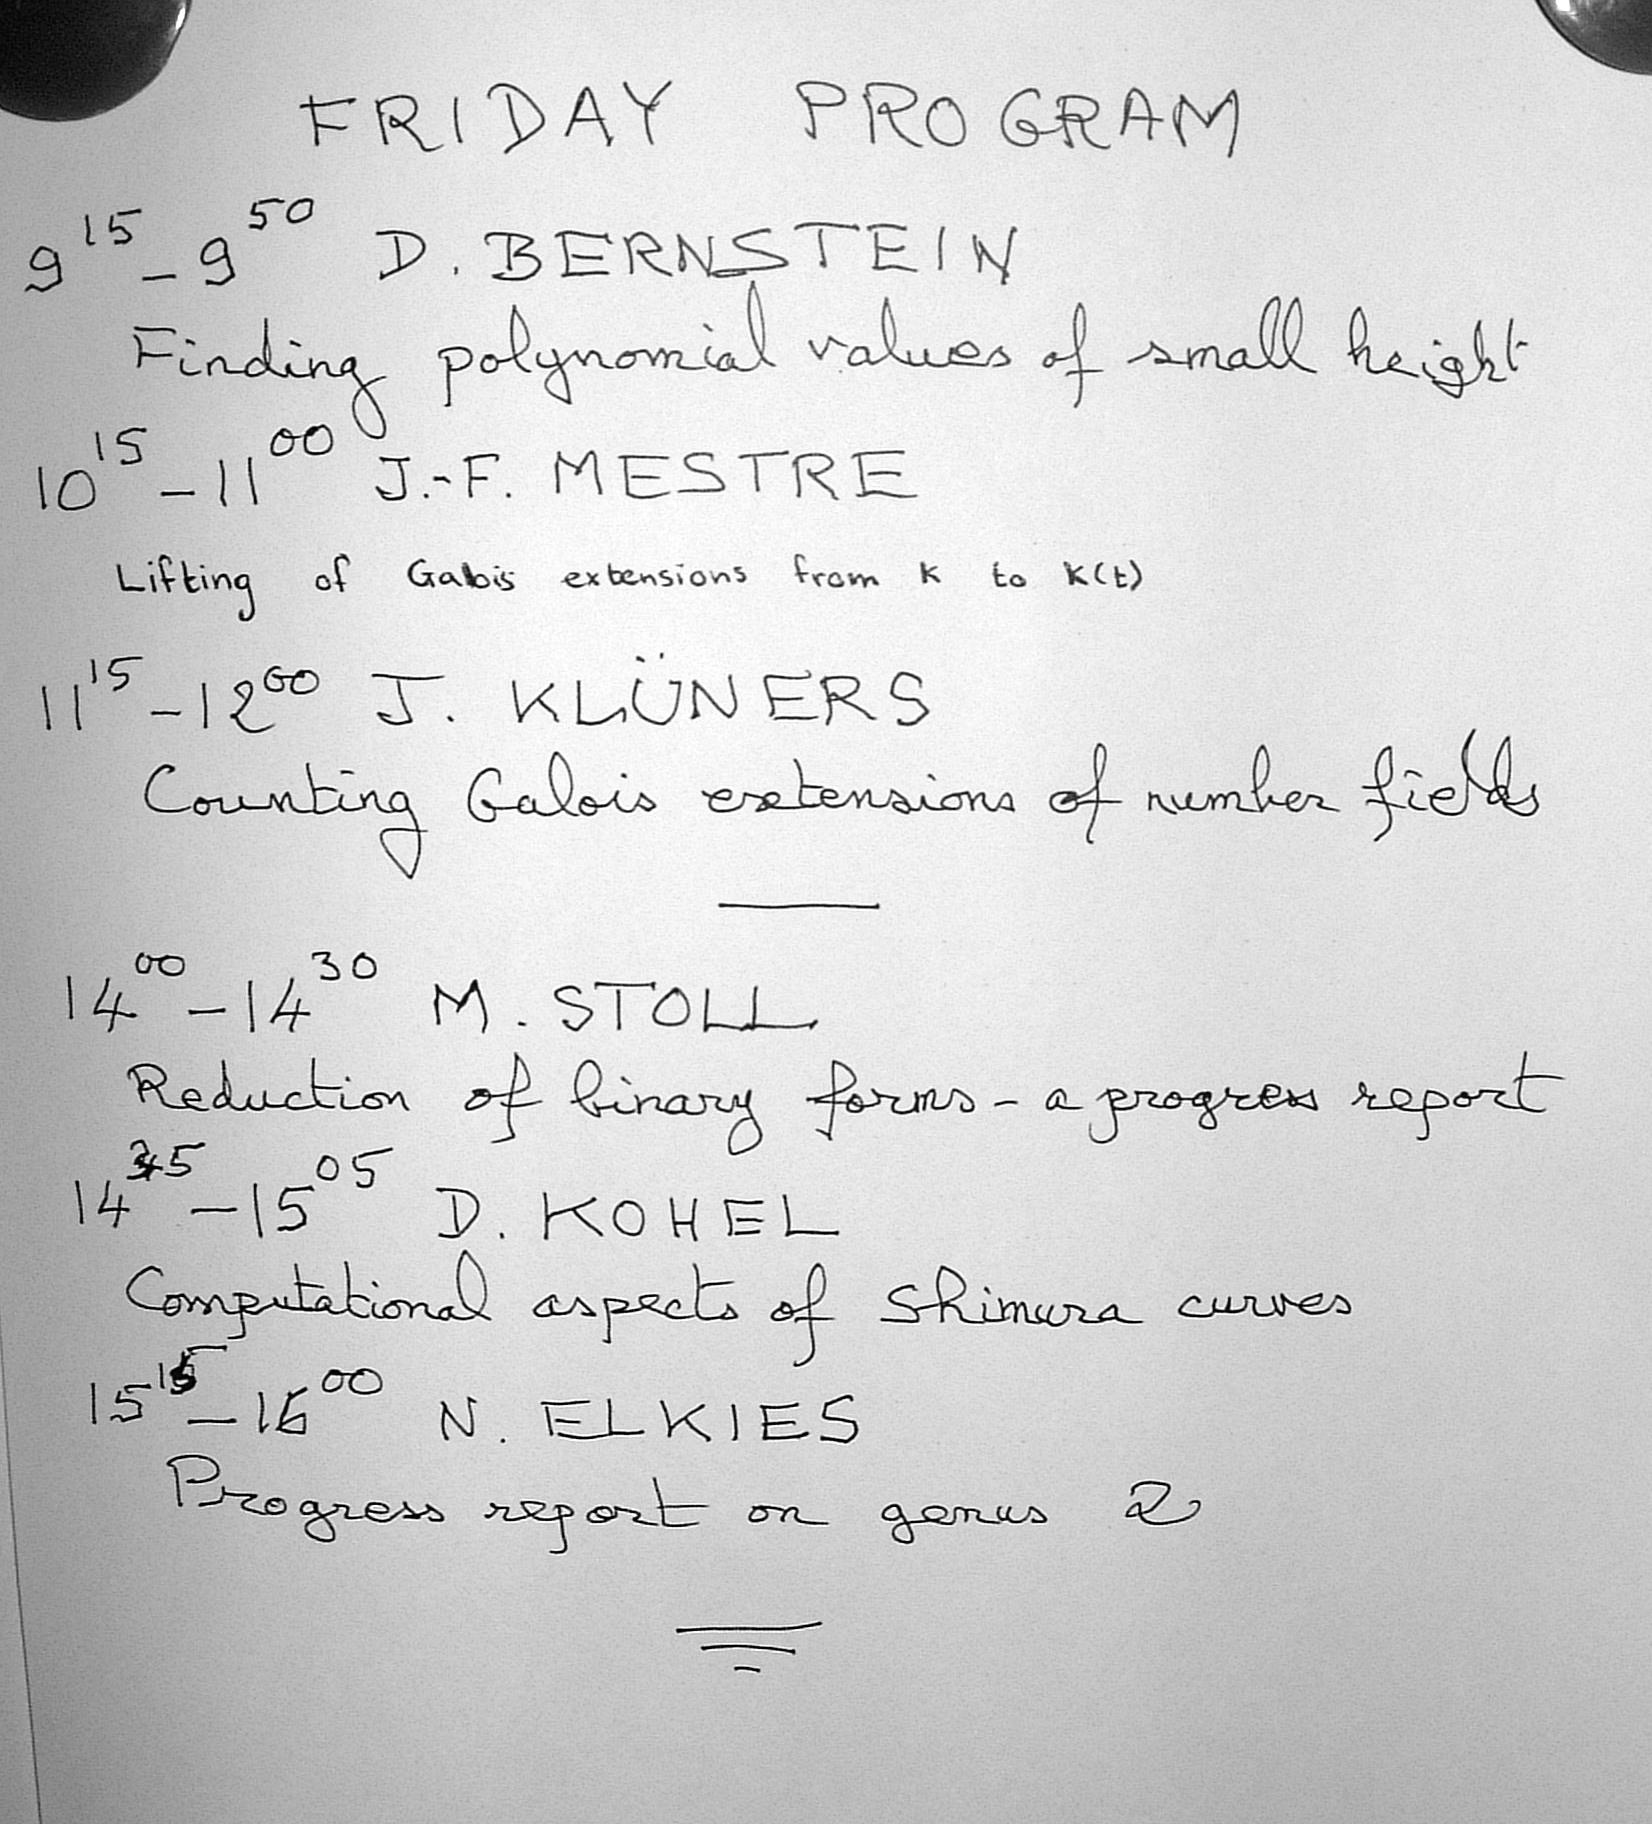 FRIDAY PROGRAM
9 15 - 9 50 D. BERNSTEIN
Finding polynomial values of small height
10 15 - 11 00 J.-F. MESTRE
Lifting of Galois extensions from K to K(t)
11 15 - 12 00 J. KLÜNERS
Counting Galois extensions of number fields
14 00 - 14 30 M. STOLL
Reduction of binary forms - a progress report
14 35 - 15 05 D. KOHEL
Computational aspects of Shimura curves
15 15 - 16 00 N. ELKIES
Progress report on genus 2